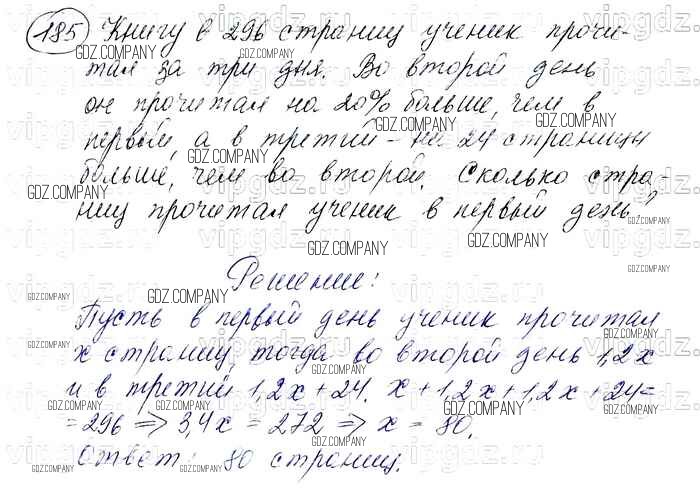 185 Книгу в 296 страниц ученик прочи-
тал за три дня. Во второй день
он прочитал на 20% больше, чем в
первый, а в третий - на 24 страницы
больше, чем во второй. Сколько стра-
ниц прочитал ученик в первый день?
Решение:
Пусть в первый день ученик прочитал
x страниц, тогда во второй день 1,2x
и в третий 1,2x+24. x+1,2x+1,2x+24=
=296 => 3,4x = 272 => x = 80.
Ответ: 80 страниц.